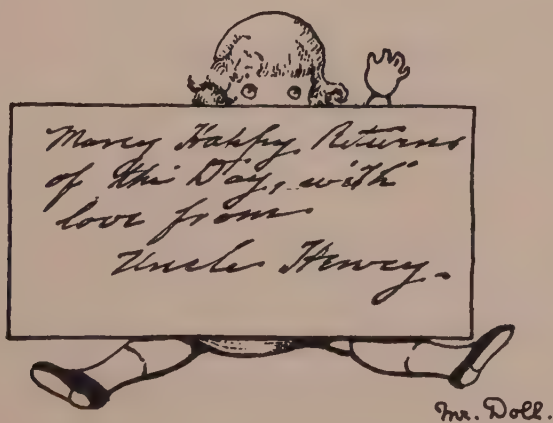 Many Happy Returns
of this Day, with
love from
Uncle Henry.
Mr. Doll.